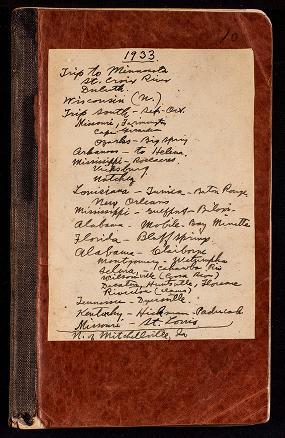 10
1933
Trip to Minnesota
St. Croix River
Duluth
Wisconsin (N.)
Trip South - Sep-Oct.
Missouri, Farmington
Cape Girardeau
Ozarks - Big Spring
Arkansas - to Helena,
Mississippi - Rosedale
Vicksburg
Natchez
Louisiana - Tunica - Baton Rouge
New Orleans
Mississippi - Gulfport - Biloxi
Alabama - Mobile - Bay Minette
Florida - Bluff Springs
Alabama - Claiborne
Montgomery - Wetumpka
Selma, Cahawba Riv
Wilsonville (Coosa River)
Decatur, Huntsville, Florence
Riverton (clams)
Tennessee - Dyersville
Kentucky - Hickman - Paducah
Missouri - St. Louis
N. of Mitchellville, Ia